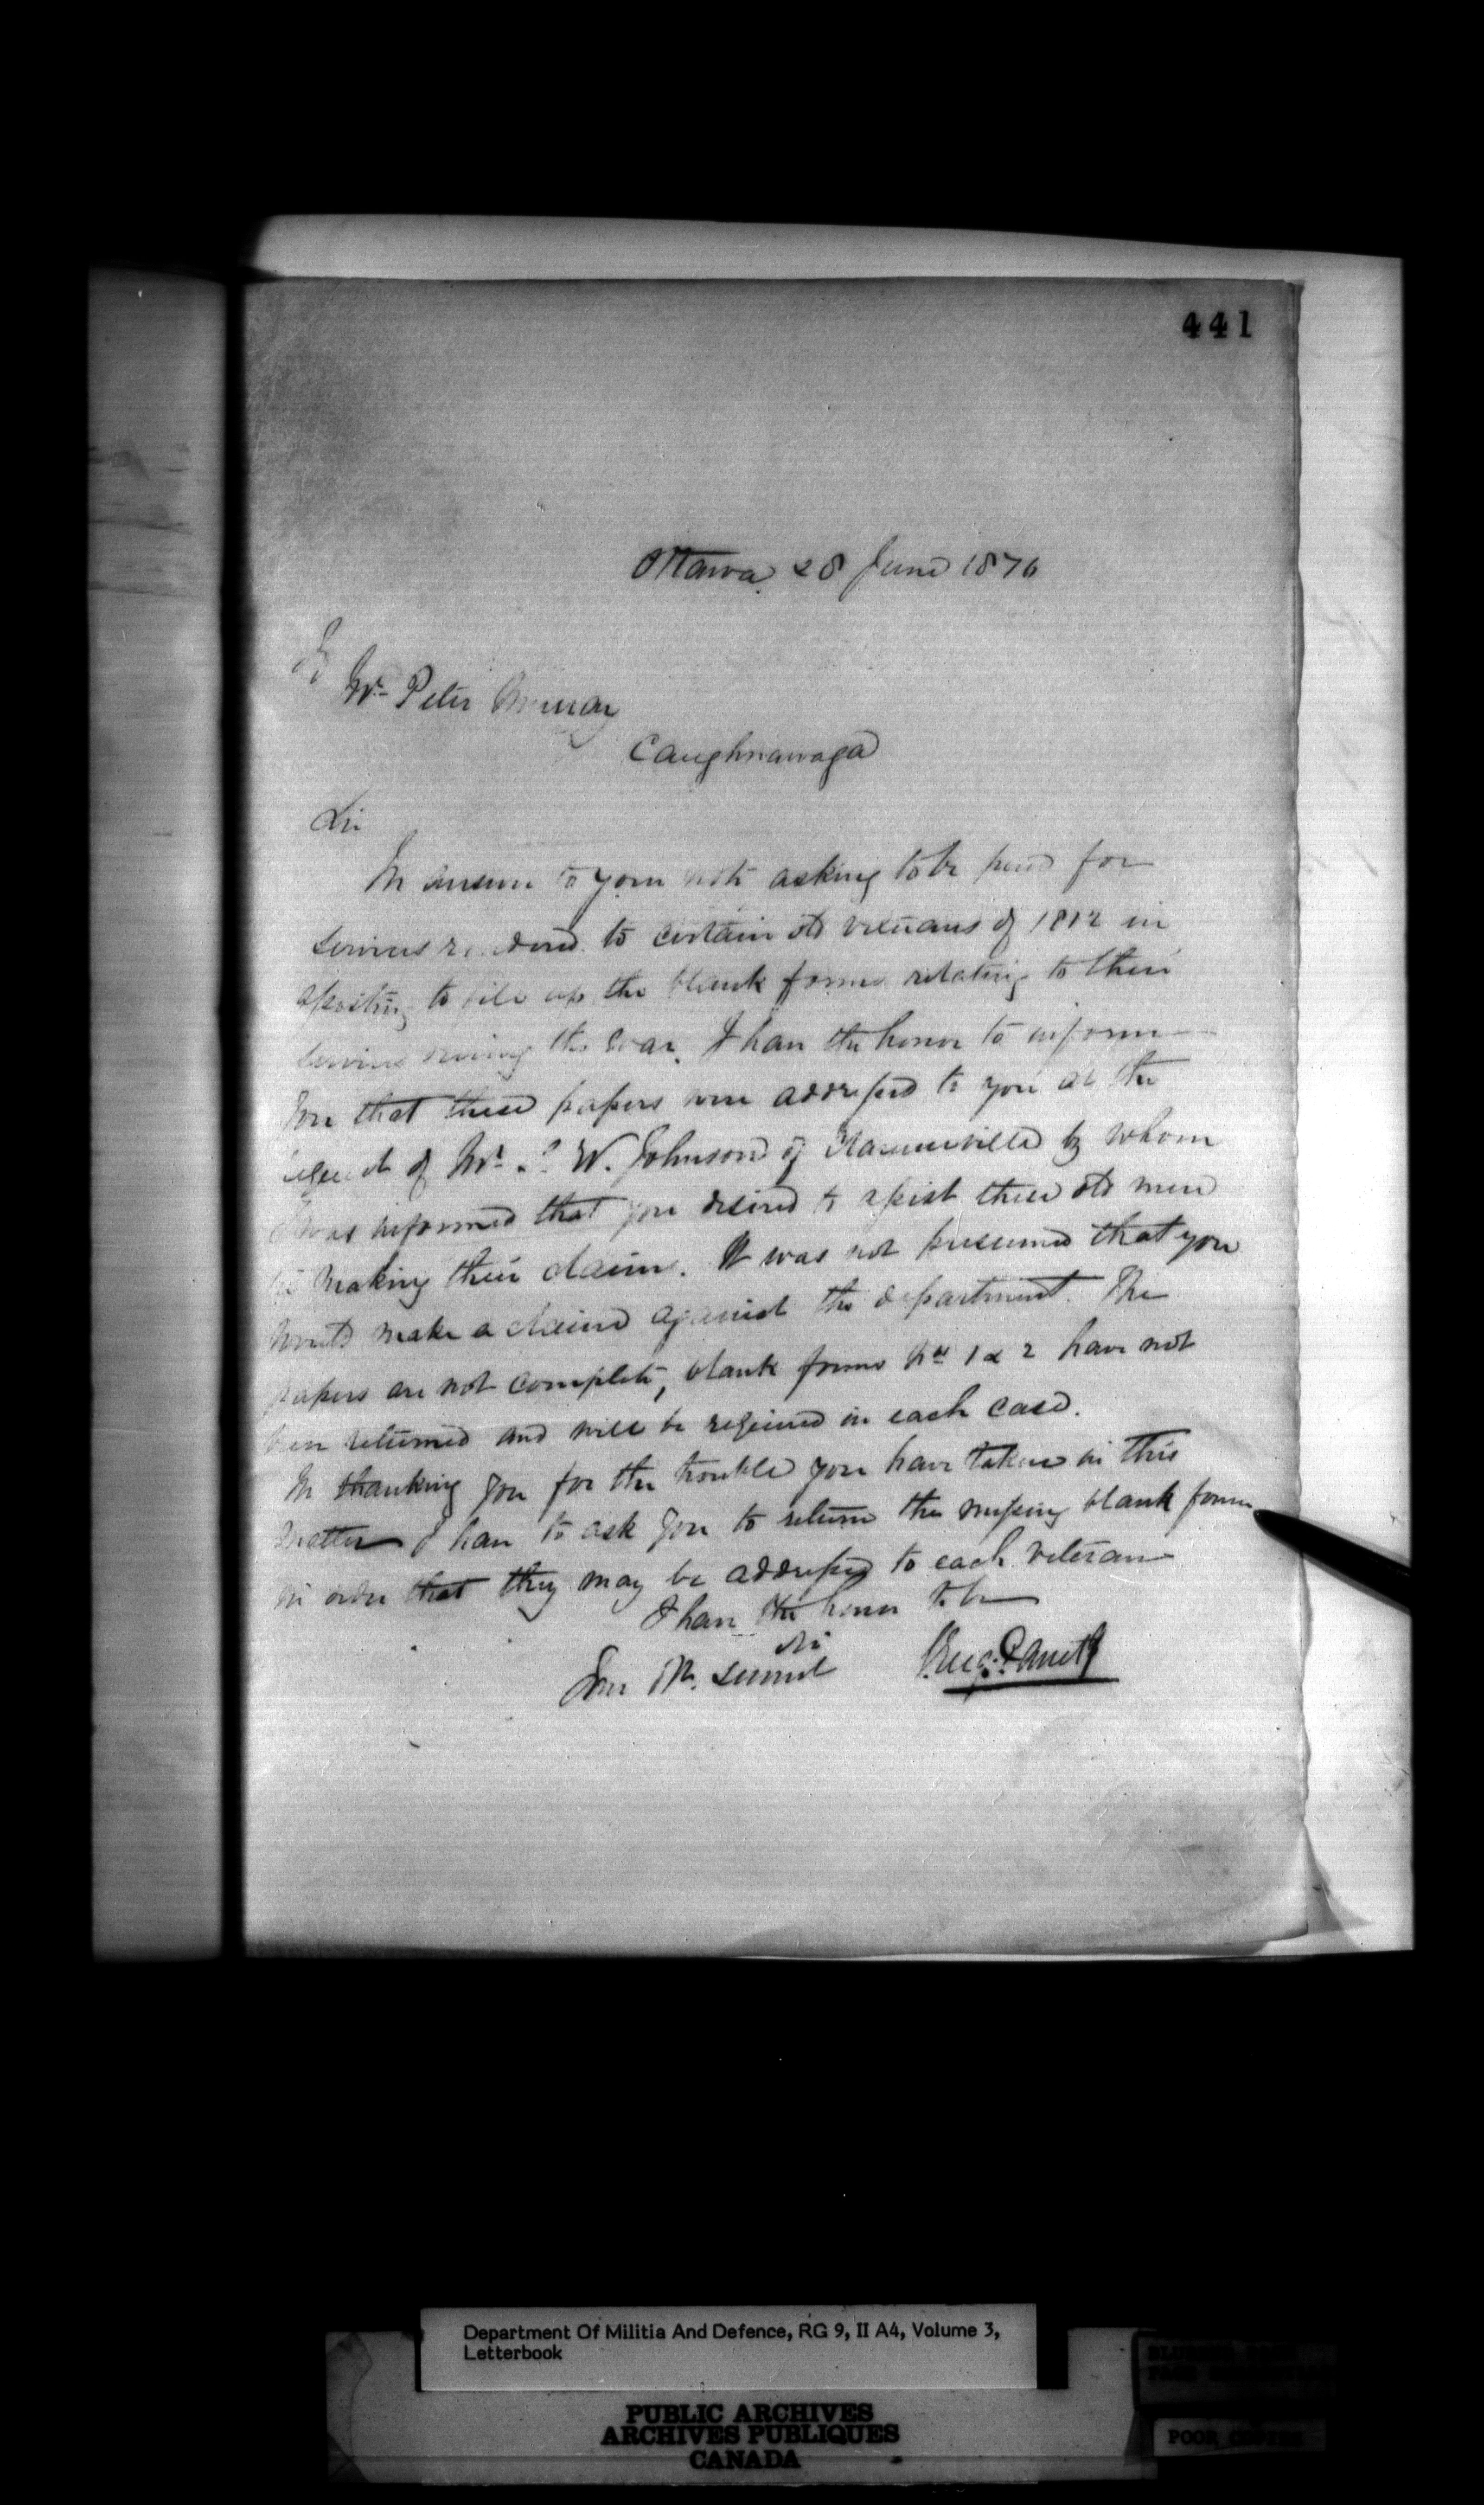 441
Ottawa 28 June 1876
To
Mr Peter Murray
Caughnawaga
Sir
In answer to your note asking to be paid for
services rendered to certain old veterans of 1812 in
assisting to fill up the blank forms relating to their
services during the war, I have the honor to inform
you that these papers were addressed to you at the
request of Mr W. Johnson of by whom
I was informed that you desired to assist these old men
in making their claims. It was not presumed that you
would make a claim against the department. The
papers are not complete, blank forms Nos 1 & 2 have not
been returned and will be required in each case.
In thanking you for the trouble you have taken in this
matter I have to ask you to return the missing blank forms
in order that they may be addressed to each veteran
I have the honor to be
Sir
Your Ob. Servant
Eug. Panet
Department Of Militia And Defence, RG 9, II A4, Volume 3,
Letterbook
PUBLIC ARCHIVES
ARCHIVES PUBLIQUES
CANADA
POOR